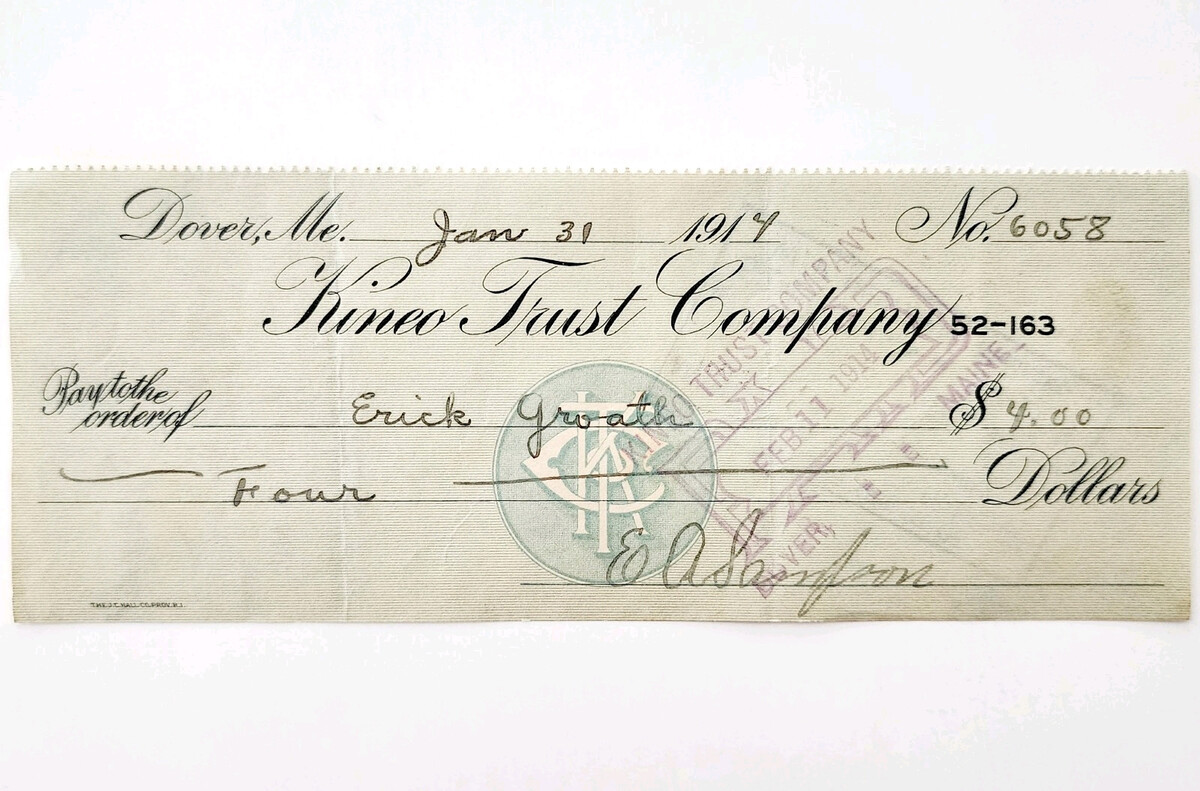 Dover, Me. Jan 31 1914 No. 6058
Kineo Trust Company 52-163
Pay to the order of Erick Groath $ 4.00
Four Dollars
E A Simpson
KTC
KINEO TRUST COMPANY
FEB 11 1914
DOVER, MAINE
THE J.C. HALL CO. PROV. R.I.